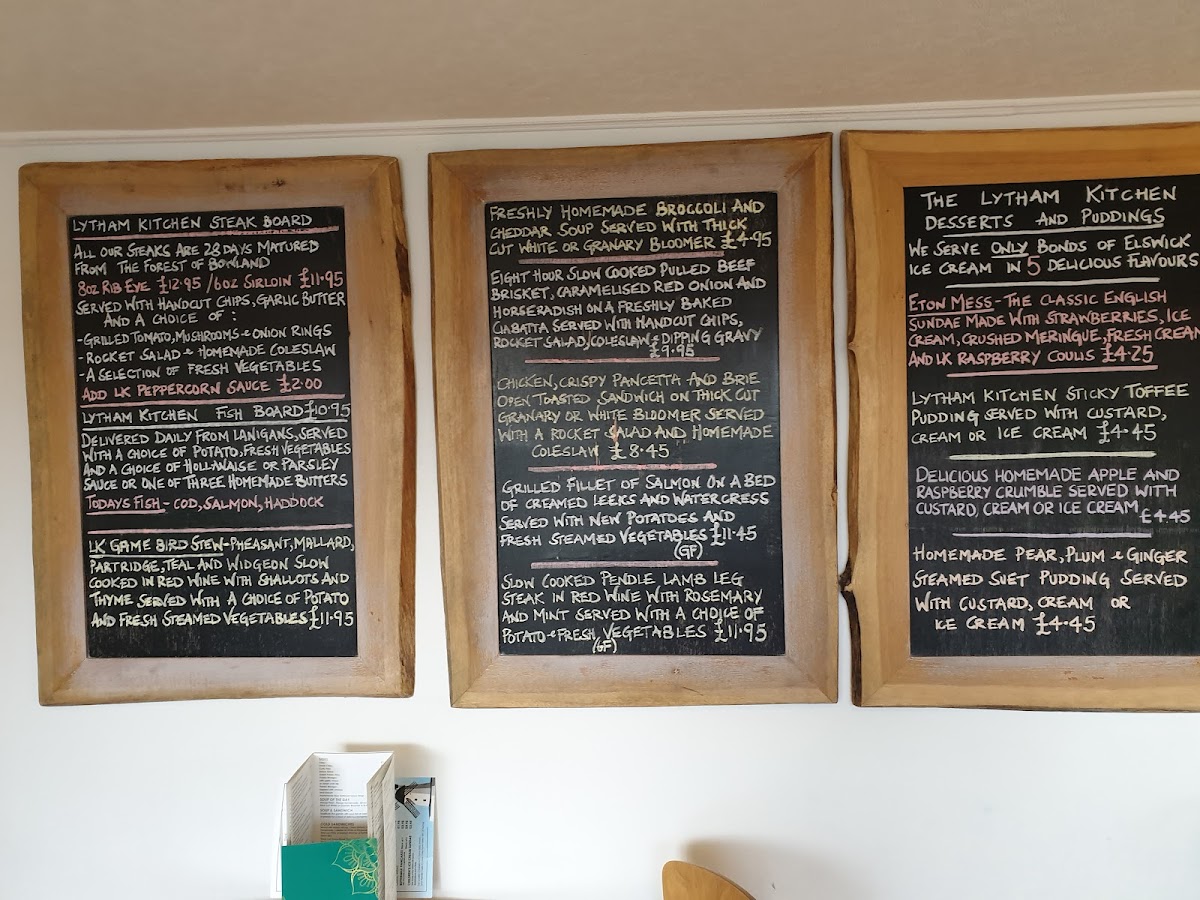 LYTHAM KITCHEN STEAK BOARD
ALL OUR STEAKS ARE 28 DAYS MATURED
FROM THE FOREST OF BOWLAND
8OZ RIB EYE £12.95 / 6OZ SIRLOIN £11.95
SERVED WITH HANDCUT CHIPS, GARLIC BUTTER
AND A CHOICE OF :
-GRILLED TOMATO, MUSHROOMS & ONION RINGS
-ROCKET SALAD & HOMEMADE COLESLAW
-A SELECTION OF FRESH VEGETABLES
ADD LK PEPPERCORN SAUCE £2.00
LYTHAM KITCHEN FISH BOARD £10.95
DELIVERED DAILY FROM LANIGANS, SERVED
WITH A CHOICE OF POTATO, FRESH VEGETABLES
AND A CHOICE OF HOLLANAISE OR PARSLEY
SAUCE OR ONE OF THREE HOMEMADE BUTTERS
TODAYS FISH - COD, SALMON, HADDOCK
LK GAME BIRD STEW - PHEASANT, MALLARD,
PARTRIDGE, TEAL AND WIDGEON SLOW
COOKED IN RED WINE WITH SHALLOTS AND
THYME SERVED WITH A CHOICE OF POTATO
AND FRESH STEAMED VEGETABLES £11.95
FRESHLY HOMEMADE BROCCOLI AND
CHEDDAR SOUP SERVED WITH THICK
CUT WHITE OR GRANARY BLOOMER £4.95
EIGHT HOUR SLOW COOKED PULLED BEEF
BRISKET, CARAMELISED RED ONION AND
HORSERADISH ON A FRESHLY BAKED
CIABATTA SERVED WITH HANDCUT CHIPS,
ROCKET SALAD, COLESLAW & DIPPING GRAVY
£9.95
CHICKEN, CRISPY PANCETTA AND BRIE
OPEN TOASTED SANDWICH ON THICK CUT
GRANARY OR WHITE BLOOMER SERVED
WITH A ROCKET SALAD AND HOMEMADE
COLESLAW £8.45
GRILLED FILLET OF SALMON ON A BED
OF CREAMED LEEKS AND WATERCRESS
SERVED WITH NEW POTATOES AND
FRESH STEAMED VEGETABLES £11.45
(GF)
SLOW COOKED PENDLE LAMB LEG
STEAK IN RED WINE WITH ROSEMARY
AND MINT SERVED WITH A CHOICE OF
POTATO & FRESH VEGETABLES £11.95
(GF)
THE LYTHAM KITCHEN
DESSERTS AND PUDDINGS
WE SERVE ONLY BONDS OF ELSWICK
ICE CREAM IN 5 DELICIOUS FLAVOURS
ETON MESS - THE CLASSIC ENGLISH
SUNDAE MADE WITH STRAWBERRIES, ICE
CREAM, CRUSHED MERINGUE, FRESH CREAM
AND LK RASPBERRY COULIS £4.25
LYTHAM KITCHEN STICKY TOFFEE
PUDDING SERVED WITH CUSTARD,
CREAM OR ICE CREAM £4.45
DELICIOUS HOMEMADE APPLE AND
RASPBERRY CRUMBLE SERVED WITH
CUSTARD, CREAM OR ICE CREAM £4.45
HOMEMADE PEAR, PLUM & GINGER
STEAMED SUET PUDDING SERVED
WITH CUSTARD, CREAM OR
ICE CREAM £4.45